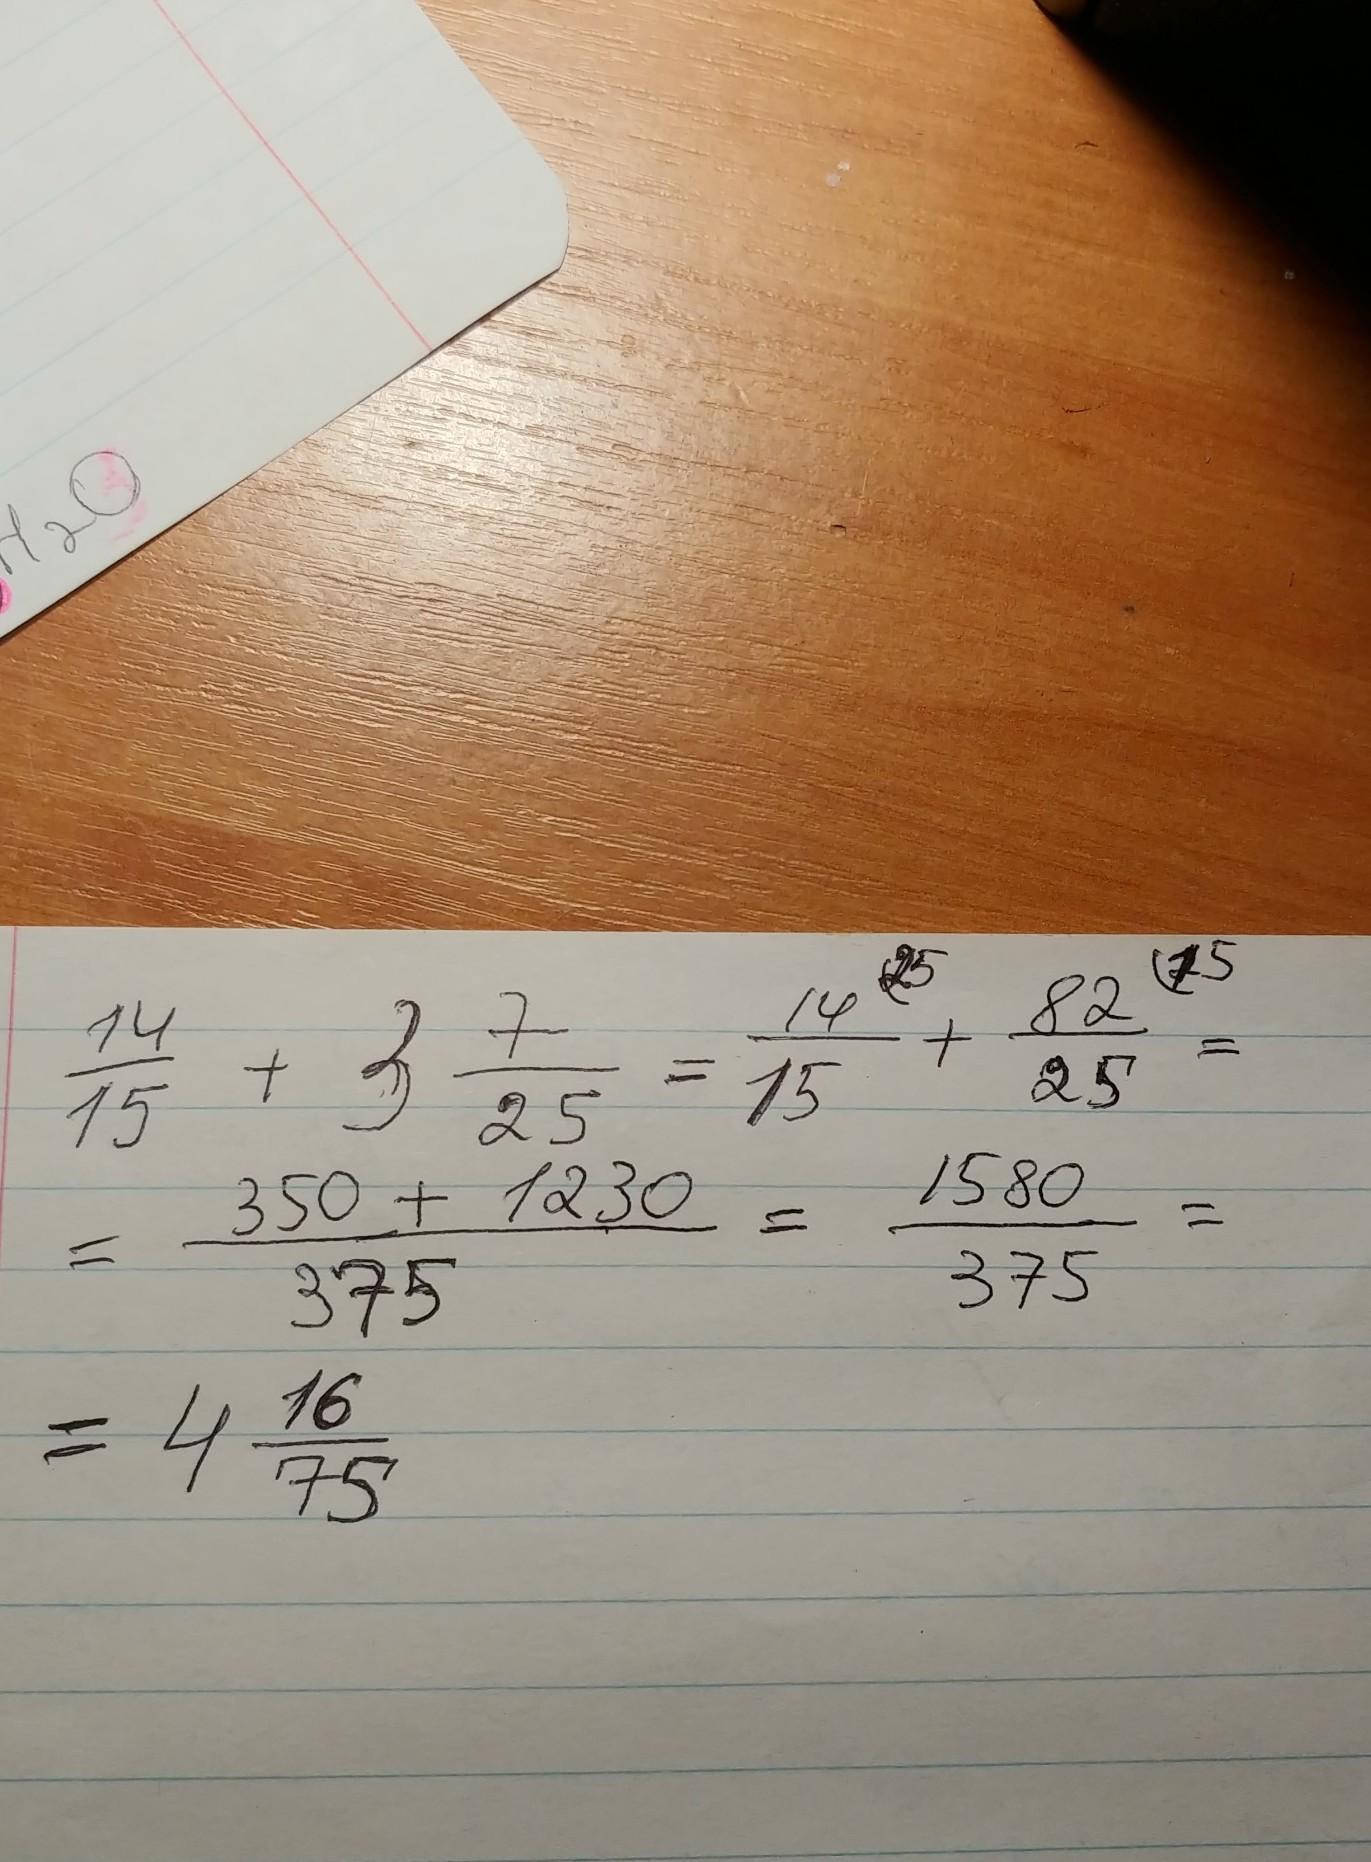 H2O
14/15 + 3 7/25 = 14/15 (25 + 82/25 (15 =
= 350 + 1230/375 = 1580/375 =
= 4 16/75